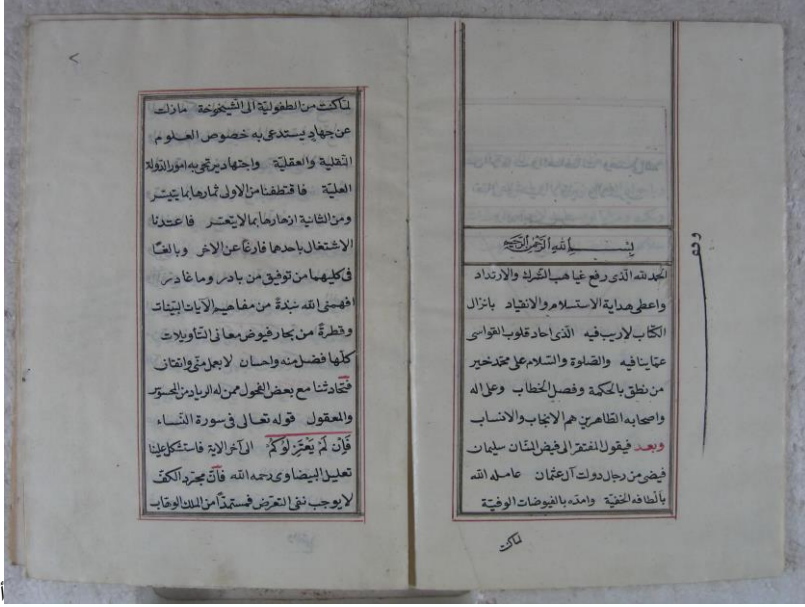 بسم الله الرحمن الرحيم
الحمد لله الذى رفع غياهب الشرك والارتداد
واعطى هداية الاستسلام والانقياد بانزال
الكتاب لاريب فيه الذى احاد قلوب القواسى
عما ينافيه والصلوة والسلام على محمد خير
من نطق بالحكمة وفصل الخطاب وعلى اله
واصحابه الظاهرين هم الانجاب والانساب
وبعد فيقول المفتقر الى فيض المنان سليمان
فيضى من رجال دولت آل عثمان عامله الله
بألطافه الخفية وامده بالفيوضات الوفية
لما كنت
لما كنت من الطفولية الى الشيخوخة مازلت
عن جهاد يستدعى به خصوص العلوم
النقلية والعقلية واجتهاد يرتجى به امور الدولة
العلية فاقتطفنا من الاولى ثمارها بما يتيسر
ومن الثانية ازهارها بما لا يتعسر فاعتدنا
الاشتغال باحدهما فارغا عن الاخر وبالغنا
فى كليهما من توفيق من بادر وما غادر
افهمنى الله نبذة من مفاهيم الآيات البينات
وقطرة من بحار فيوض معانى التأويلات
كلها فضل منه واحسان لا بعمل منى واتقان
فتحادثنا مع بعض الفحول ممن له الرياد من المحسوس
والمعقول قوله تعالى فى سورة النساء
فإن لم يعتزلوكم الى آخر الاية فاستشكل علينا
تعليل البيضاوى رحمه الله فان مجرد الكف
لا يوجب نفى التعرض فمستمدا من الملك الوهاب